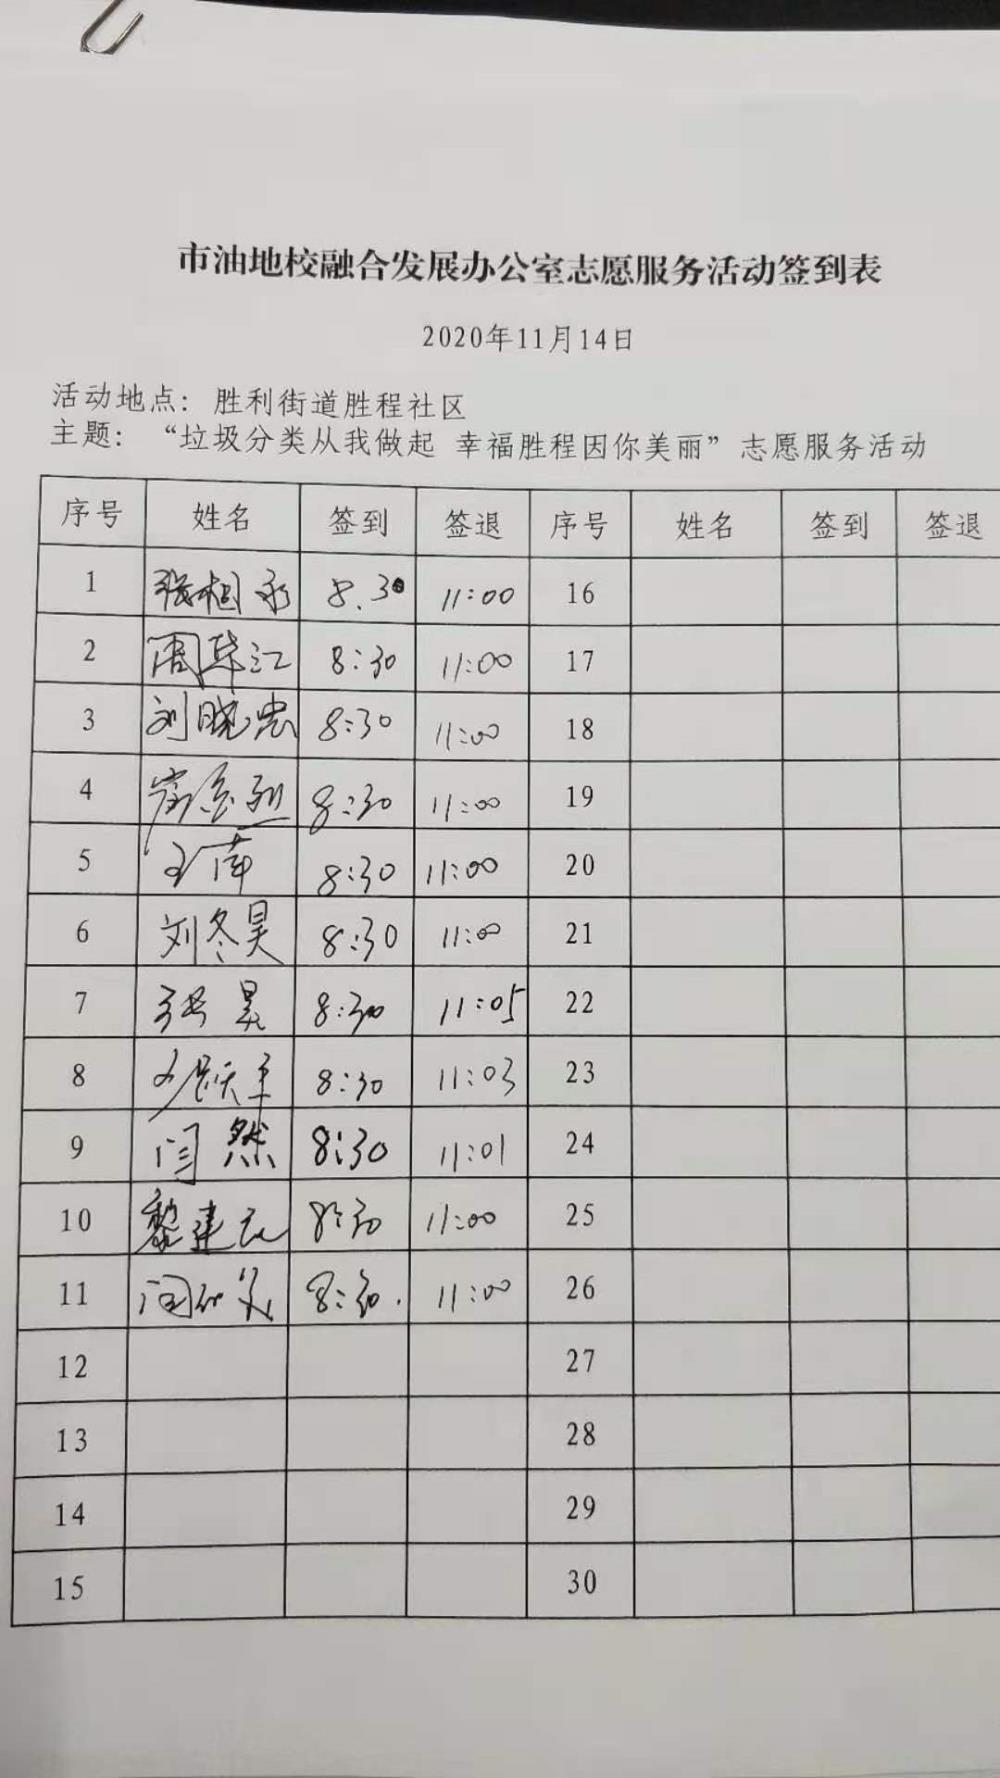 市油地校融合发展办公室志愿服务活动签到表
2020年11月14日
活动地点：胜利街道胜程社区
主题：“垃圾分类从我做起 幸福胜程因你美丽”志愿服务活动
序号 姓名 签到 签退 序号 姓名 签到 签退
1 张相永 8.30 11:00 16
2 周华江 8:30 11:00 17
3 刘晓忠 8:30 11:00 18
4 8:30 11:00 19
5 王南 8:30 11:00 20
6 刘冬昊 8:30 11:00 21
7 张昊 8:30 11:05 22
8 8:30 11:03 23
9 闫然 8:30 11:01 24
10 黎建 8:30 11:00 25
11 8:30. 11:00 26
12 27
13 28
14 29
15 30